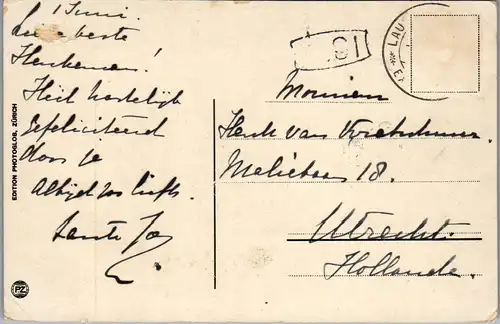 1 Juni.
Lieve beste
Henkeman!
Heel hartelijk
Gefeliciteerd
door je
Altijd zoo liefh.
tante Jo
EDITION PHOTOGLOB, ZÜRICH
PZ
LAU
Monsieur
Henk van
Meliestraat 18.
Utrecht.
Hollande.